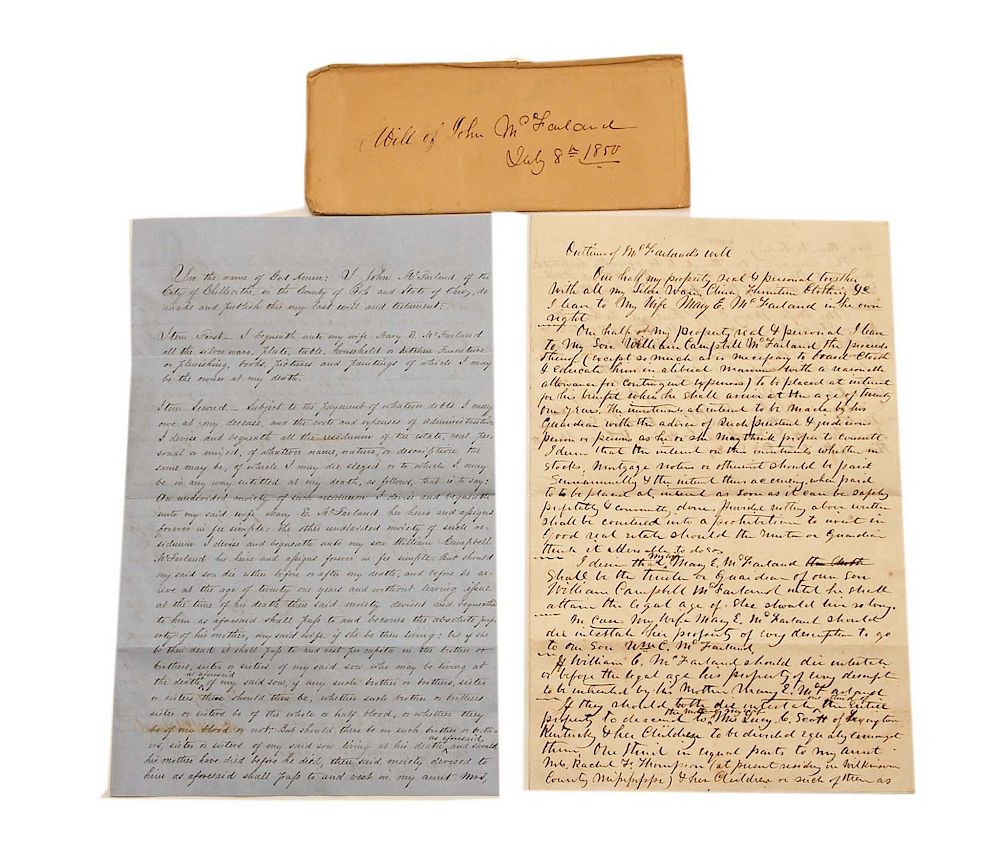 Will of John McFarland
July 8th 1850
In the name of God Amen: I John McFarland of the
City of Chillicothe, in the County of Ross and State of Ohio, do
make and publish this my last will and testament:
Item First - I bequeath unto my wife Mary E. McFarland
all the silver ware, plate, table, household or kitchen furniture
or furnishing, books, pictures and paintings of which I may
be the owner at my death.
Item Second - Subject to the payment of whatever debts I may
owe at my decease, and the costs and expenses of administration
I devise and bequeath all the residuum of the estate, real, per
sonal or mixed, of whatever name, nature, or description the
same may be, of which I may die siezed or to which I may
be in any way entitled at my death, as follows, that is to say:
An undivided moiety of such residuum I devise and bequeath
unto my said wife Mary E. McFarland her heirs and assigns
forever in fee simple: the other undivided moiety of such re-
siduum I devise and bequeath unto my son William Campbell
McFarland his heirs and assigns forever in fee simple. But should
my said son die either before or after my death, and before he ar-
ive at the age of twenty one years and without leaving issue
at the time of his death then said moiety devised and bequeathed
to him as aforesaid shall pass to and become the absolute prop-
erty of his mother, my said wife if she be then living: but if she
be then dead it shall pass to and vest per capita in the brother or
brothers, sister or sisters of my said son who may be living at
as aforesaid
the death, of my said son, if any such brother or brothers, sister
or sisters, there should then be, whether such brother or brothers
sister or sisters be of the whole or half blood, or whether they
be of my blood or not: But should there be no such brother or broth-
as aforesaid
ers, sister or sisters of my said son living at his death, and should
his mother have died before he died, then said moiety devised to
him as aforesaid shall pass to and vest in my aunt Mrs,
Outlines of McFarland's will
One half my property real & personal together
with all my Silver Ware, China, Furniture Clothing &c
I leave to My Wife Mary E. McFarland in her own
right
One half of My property real & personal I leave
to My Son William Campbell McFarland the proceeds
thereof (except so much as is necessary to board Cloth
& educate him in a liberal manner with a reasonable
allowance for contingent expenses) to be placed at interest
for his benefit when he shall arrive at the age of twenty
one years. The investments at interest to be made by his
Guardian with the advice of such prudent & judicious
person or persons as he or she may think proper to consult
I desire that the interest on the investments whether in
Stocks, Mortgage Notes or otherwise should be paid
Semiannually & the interest thus accruing when paid
to be placed at interest as soon as it can be safely
profitably & conveniently done, provided nothing above written
shall be construed into a prohibition to invest in
Good real estate should the trustee or Guardian
think it advisable to do so.
my wife
I desire that Mary E. McFarland
Shall be the trustee or Guardian of our Son
William Campbell McFarland until he shall
attain the legal age if She should live so long.
In case My Wife Mary E. McFarland should
die intestate her property of every description to go
to our Son Wm C. McFarland
If William C. McFarland should die intestate
or before the legal age his property of every descript
to be inherited by his Mother Mary E. McFarland
If they should both die intestate, the entire
property to descend to Mrs Lucy C. Scott of Lexington
Kentucky & her Children to be divided equally amongst
them. One third in equal parts to my aunt
Mrs. Rachel F. Thompson (at present residing in Wilkinson
County Mississippi) & her Children or such of them as